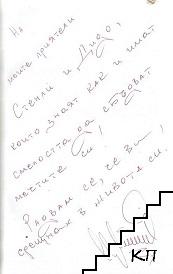 На
моите приятели
Стенли и Дидо,
които знаят как и имат
смелостта да сбъдват
мечтите си!
Радвам се, че ви
срещнах в живота си.
КП